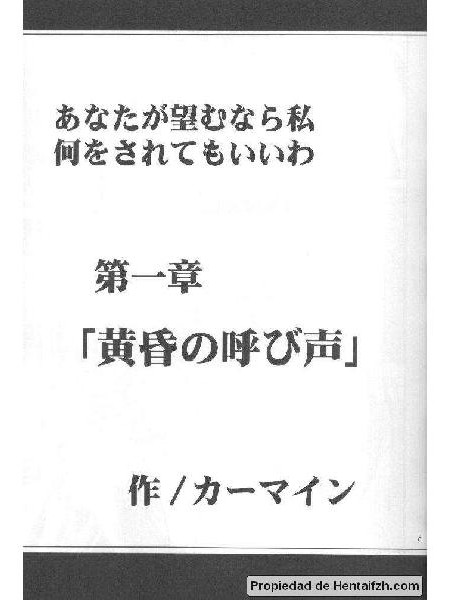 あなたが望むなら私
何をされてもいいわ
第一章
「黄昏の呼び声」
作/カーマイン
Propiedad de Hentaifzh.com